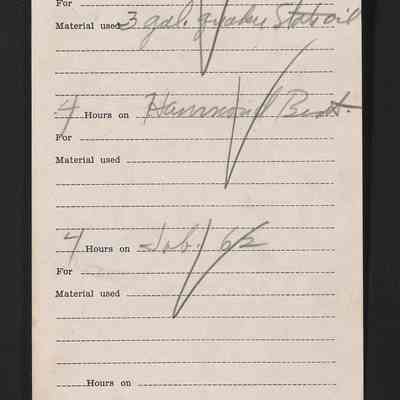 For
Material used 3 gal. quaker State oil
4 Hours on Hammond
For
Material used
4 Hours on Job. 62
For
Material used
Hours on